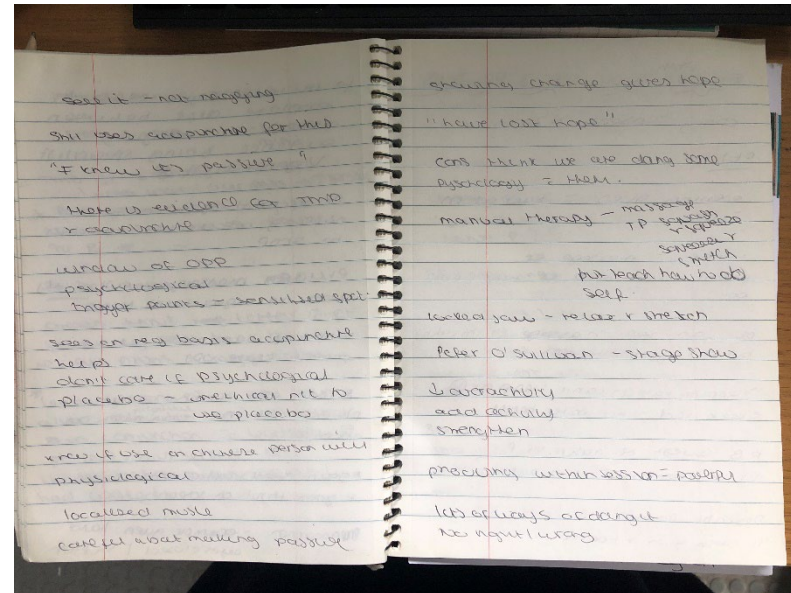 seen it - not nagging
still uses acupuncture for this
"I know it's passive"
there is evidence for TMD
+ acupuncture
window of OPP
psychological
trigger points = sensitised spot.
sees on reg basis acupuncture
helps
don't care if psychological
placebo - unethical not to
use placebo
knew if use on chinese person will
physiological
localised muscle
careful about making passive
showing change gives hope
"have lost hope"
cons think we are doing some
pyschology = them.
manual therapy - massage
TP squash
+ squeeze
squeeze +
stretch
but teach how to do
self.
locked jaw - relax + stretch
Peter O'Sullivan - stage show
↓ overactivity
add activity
strengthen
proving within session = powerful
lots of ways of doing it
No right/wrong